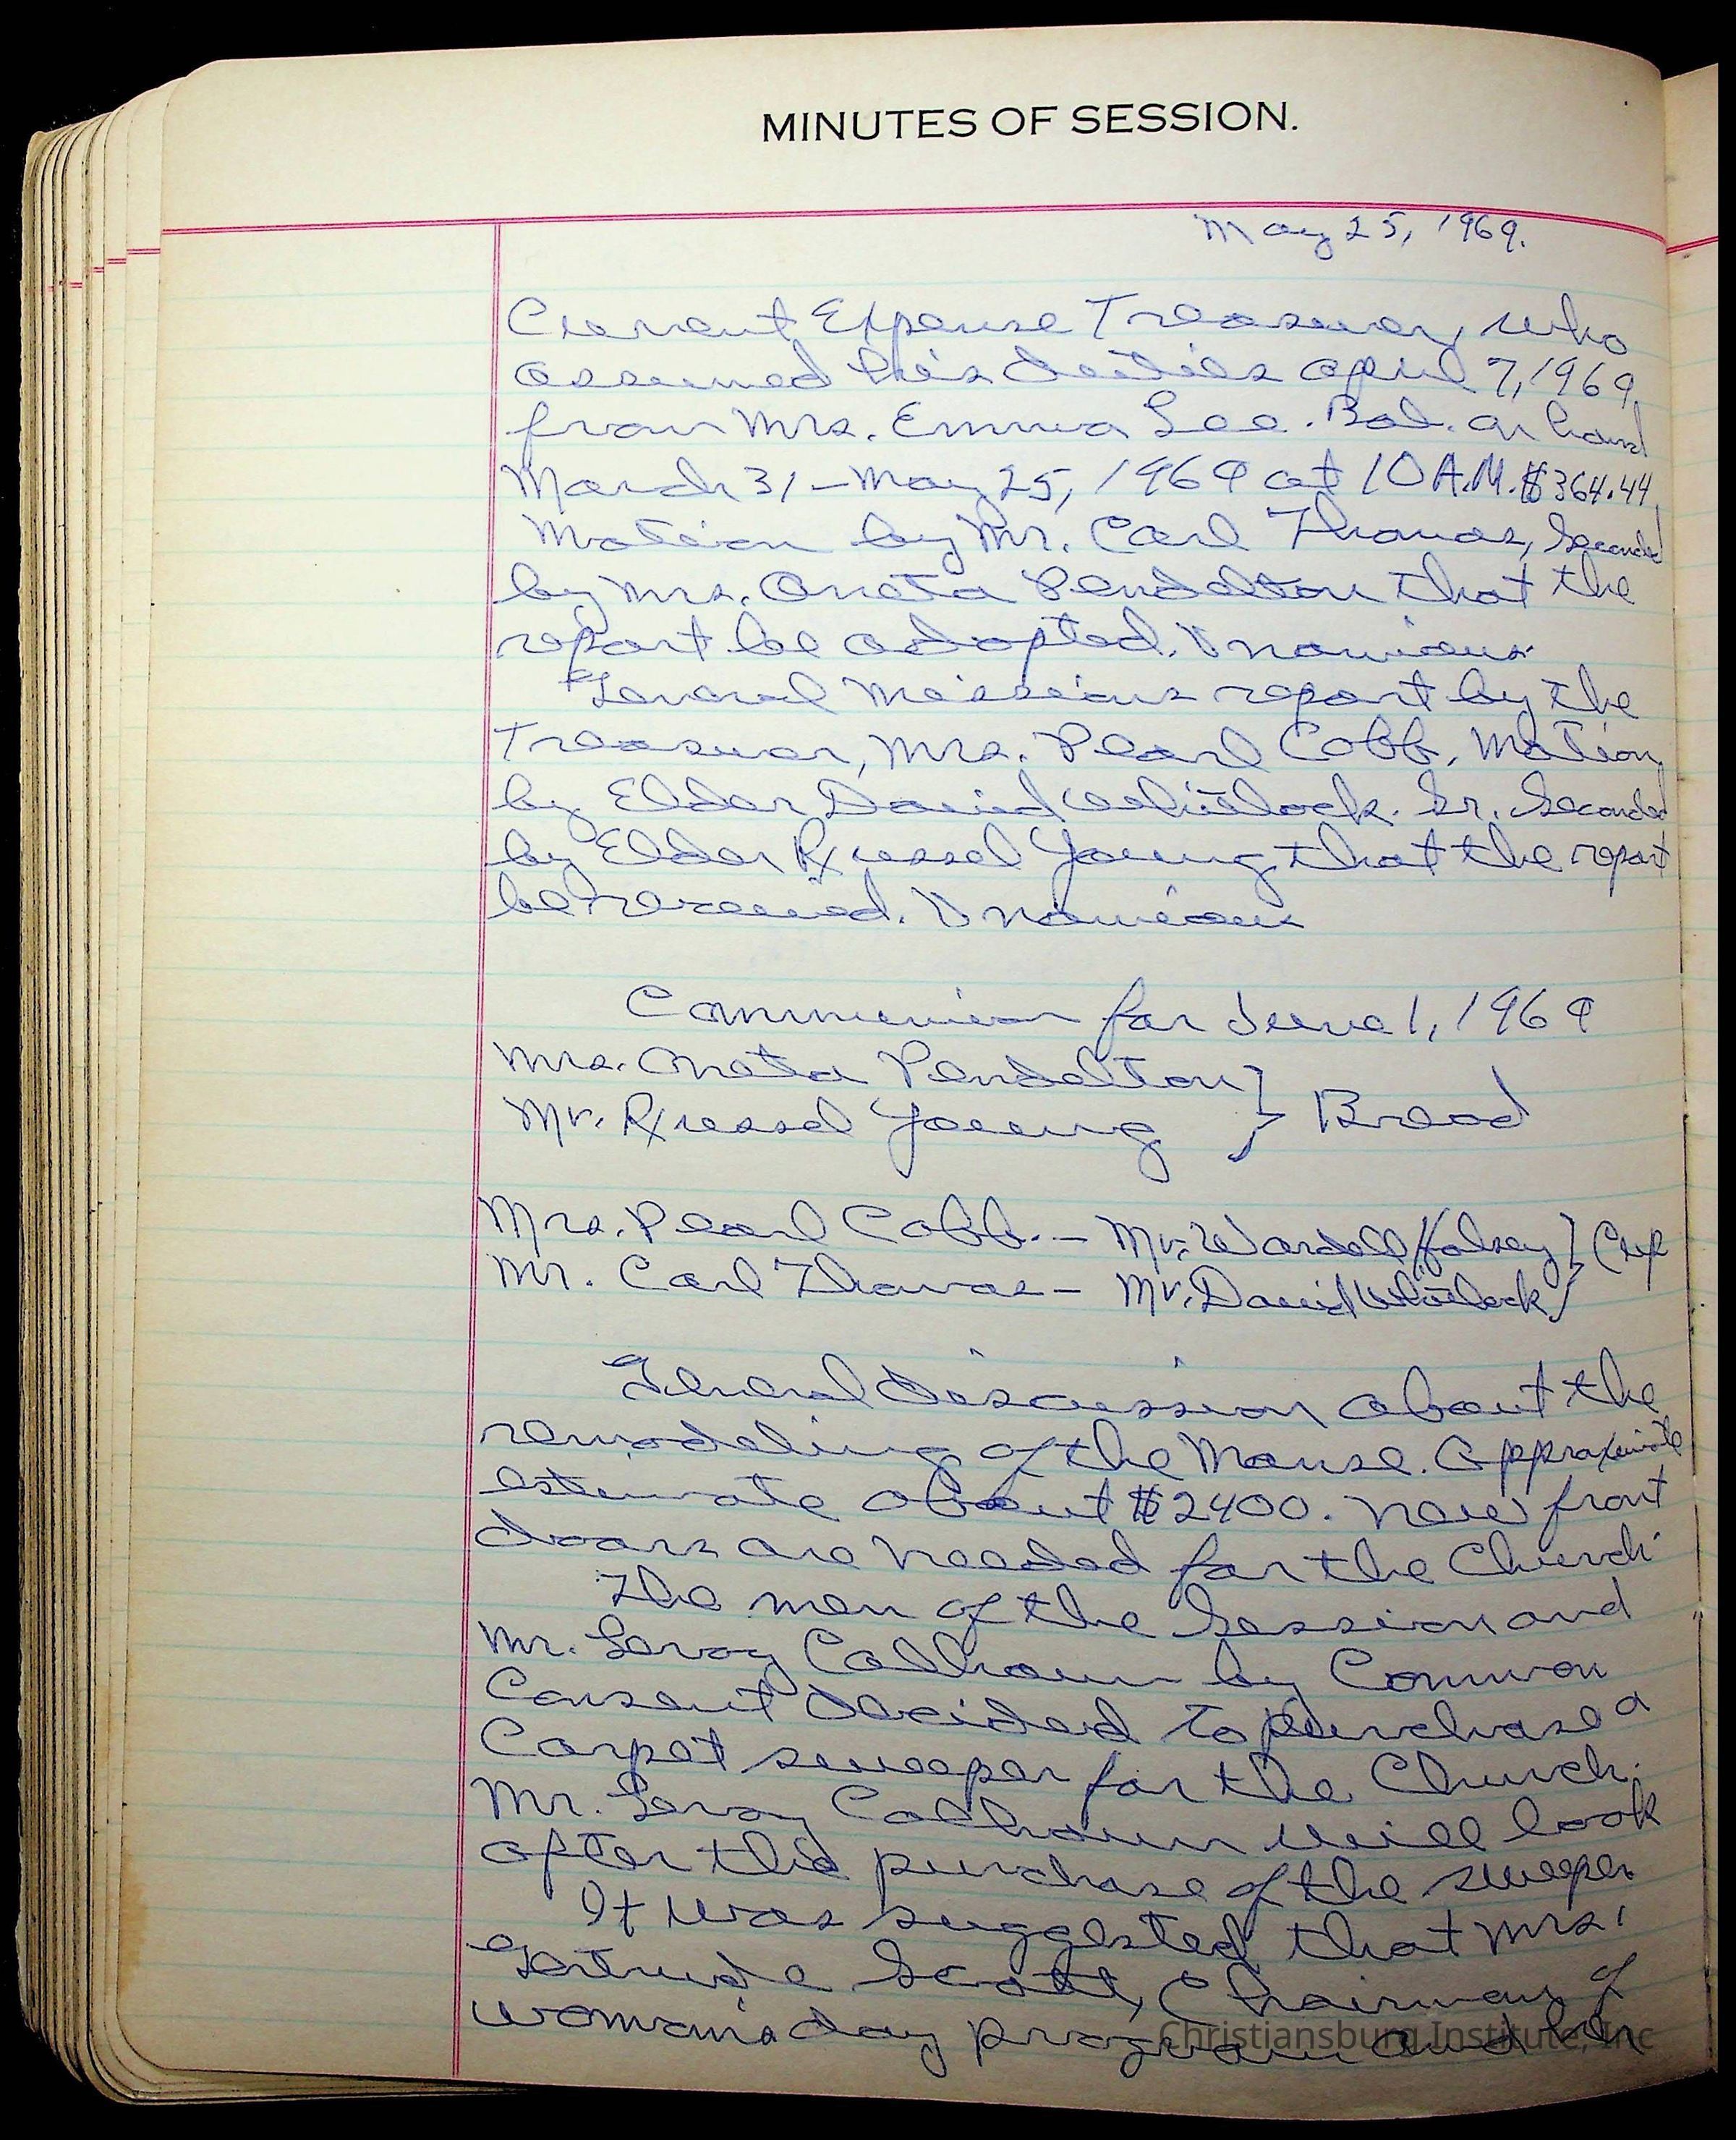 MINUTES OF SESSION.
May 25, 1969.
Current Expense Treasurer, who
assumed his duties april 7, 1969
from Mrs. Emma Lee. Bal. on hand
March 31 - May 25, 1969 at 10 A.M. $364.44
Motion by Mr. Carl Thomas, Seconded
by Mrs. Oneta Pendelton that the
report be adopted. Unanimous
General Missions report by the
Treasurer, Mrs. Pearl Cobb. Motion
by Elder David Whitlock. Sr. Seconded
by Elder Russel Young that the report
be received. Unanimous
Communion for June 1, 1969
Mrs. Oneta Pendelton }
Mr. Russel Young } Bread
Mrs. Pearl Cobb. - Mr. Wardell Holsey } Cup
Mr. Carl Thomas - Mr. David Whitlock }
General discussion about the
remodeling of the Manse. Approximate
estimate about $2400. New front
doors are needed for the Church.
The men of the Session and
Mr. Leroy Calhoun by Common
Consent decided to purchase a
Carpet sweeper for the Church.
Mr. Leroy Calhoun will look
after the purchase of the sweeper
It was suggested that Mrs.
Gertrude Scott, Chairman of
woman's day program and her
Christiansburg Institute, Inc